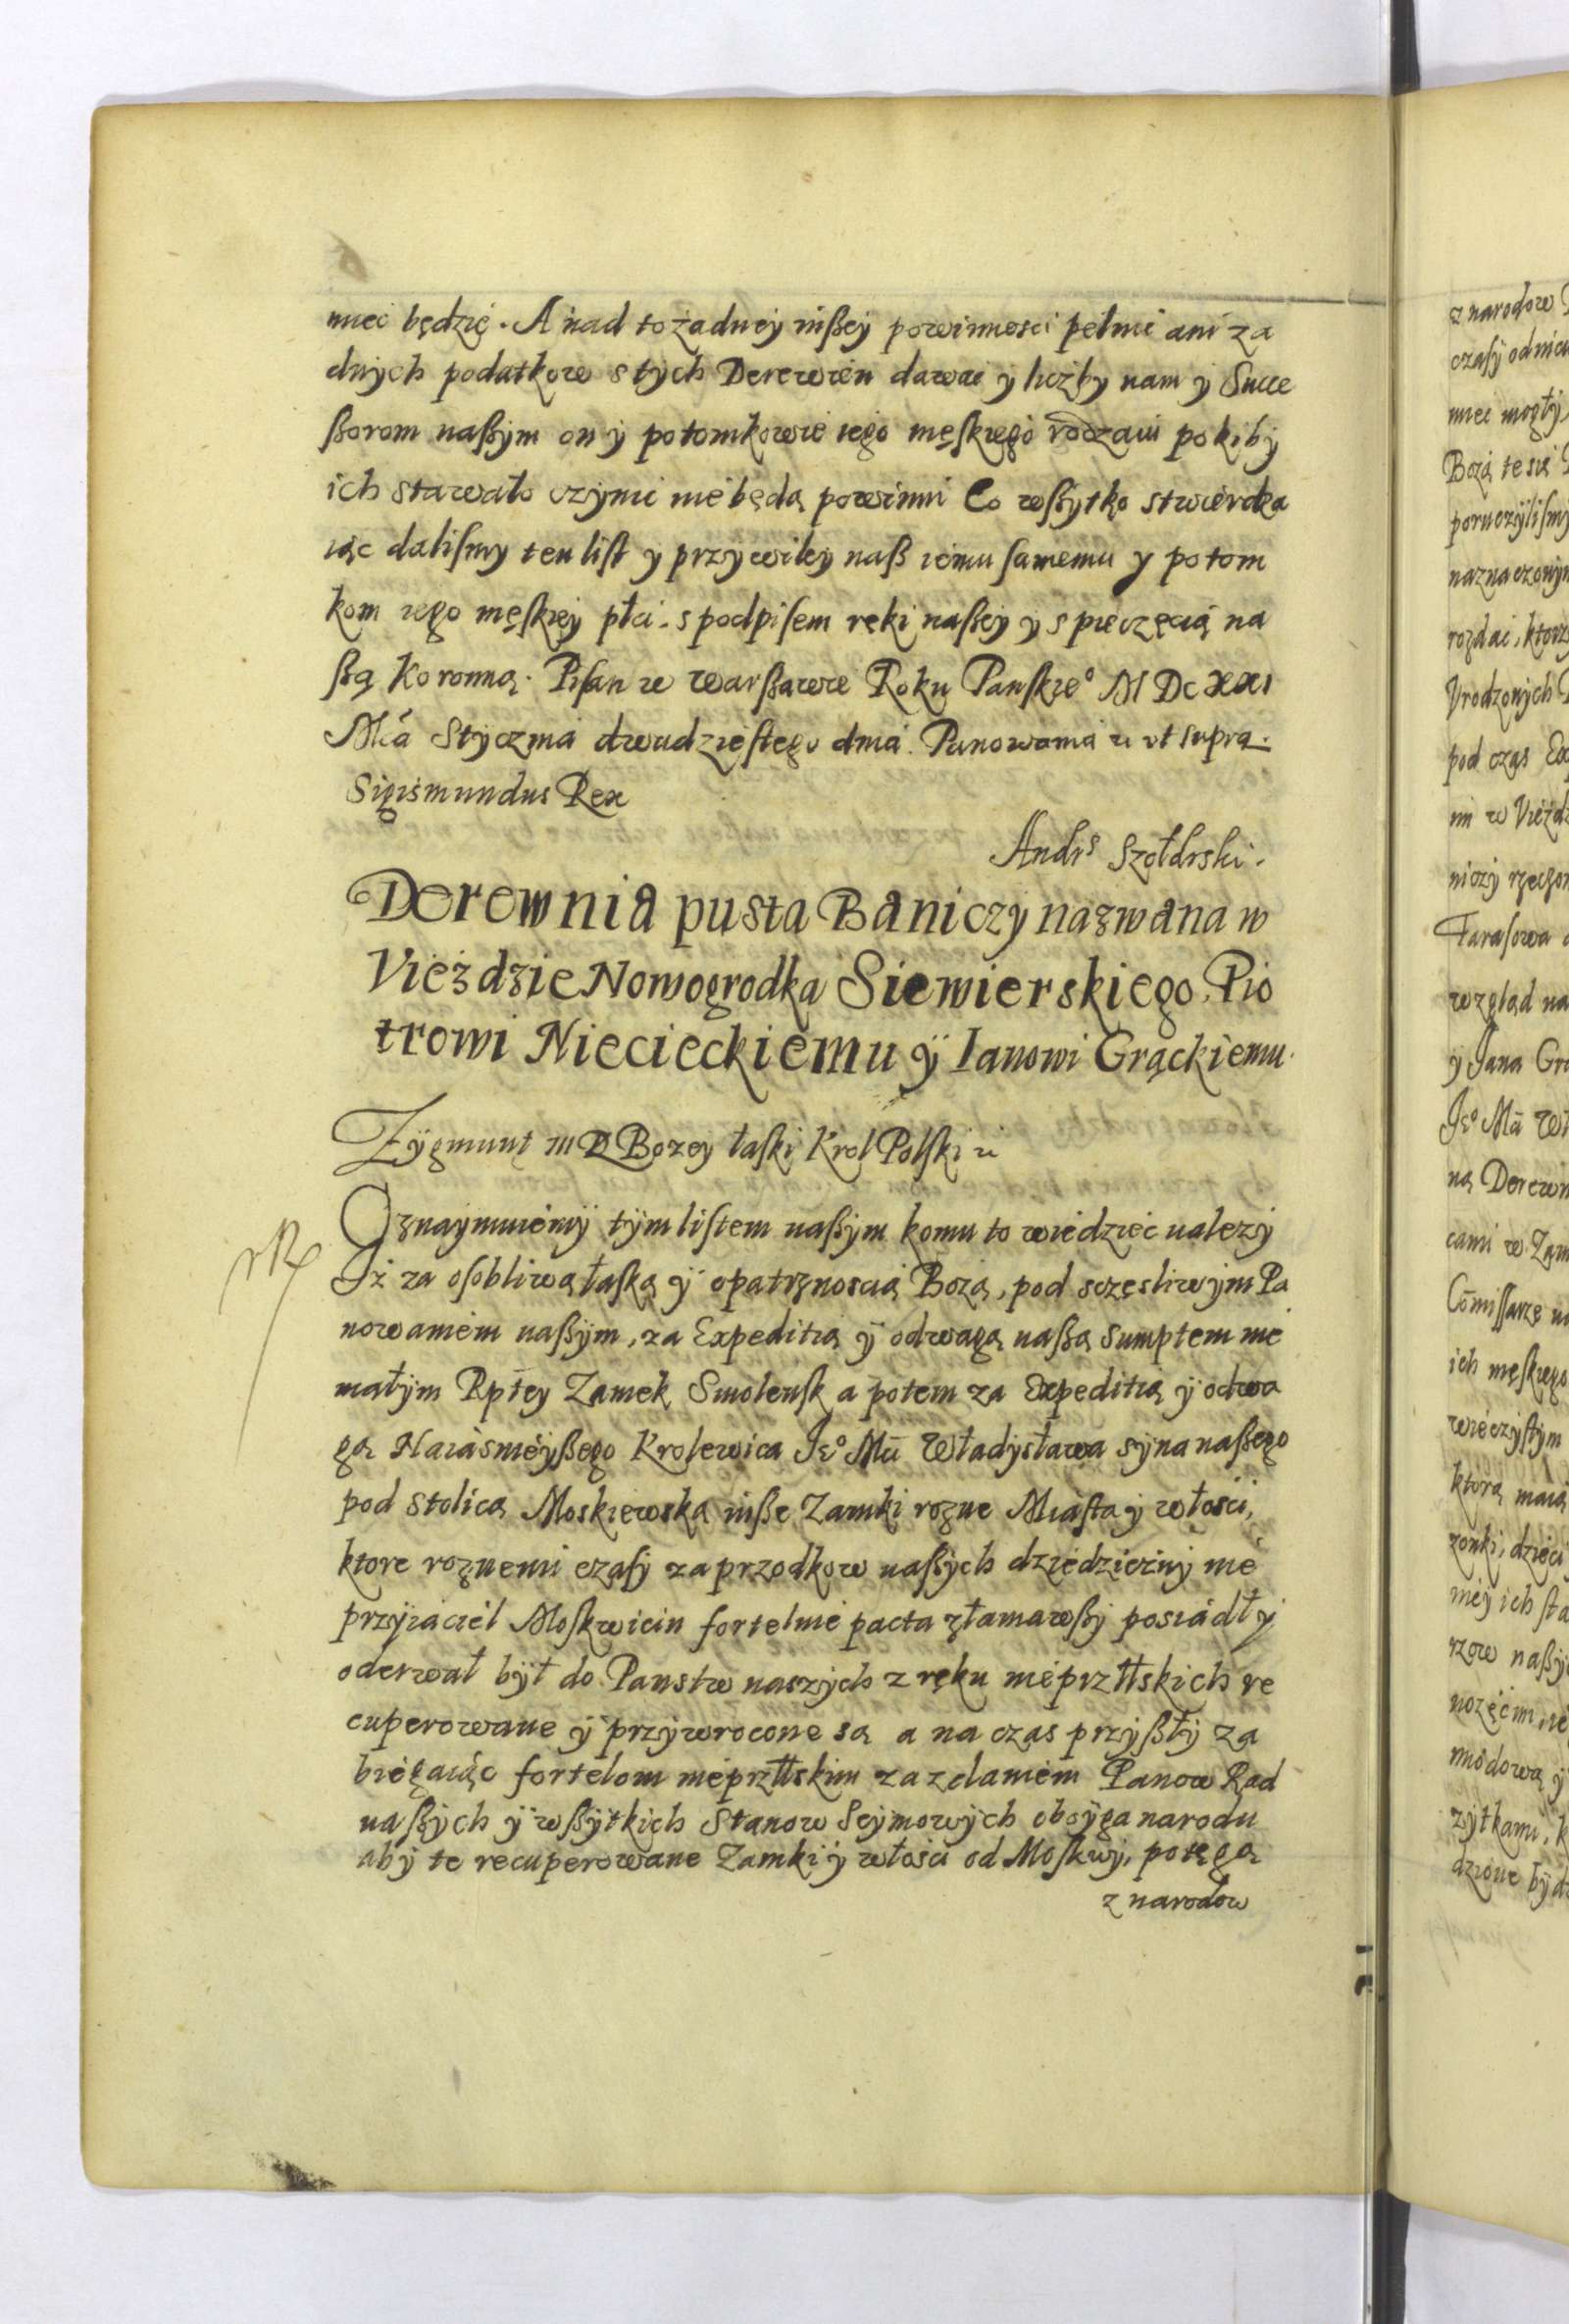 miec będzię. A nad to żadney inßey powinnosci pełnić ani ża
dnych podatkow s tych Derewien dawac y liczby nam y Succe
ßorom naßym on y potomkowie iego męskiego rodzaiu pokiby
ich stawało czynić nie będą powinni Co wßytko stwierdza
iąc dalismy ten list y przywiley naß iemu samemu y potom
kom iego męskiey płci. s podpisem ręki naßey y s pieczęcią na
ßą Koronną. Pisan w Warßawie Roku Panskieº M DC XXI
Mca Stycznia dwudziestego dnia. Panowania ut supra.
Sigismundus Rex
Andrs Szołdrski.
Derewnia pusta Baniczy nazwana w
Vieździe Nowogrodka Siewierskiego, Pio
trowi Niecieckiemu ÿ Ianowi Grąckiemu.
Zÿgmunt III D Bozey łaski Krol Polski
Oznaymuiemÿ tÿm listem naßÿm komu to wiedziec nalezy
Iż za osobliwą łaską ÿ opatrznoscią Bożą, pod sczęsliwÿm Pa
nowaniem naßÿm, za Expeditią ÿ odwagą naßą sumptem nie
małÿm Rptey Zamek Smolensk a potem za Expeditią ÿ odwa
gą Naiasnieÿßego Krolewica Jeº Mci Władysława sÿna naßego
pod stolicą Moskiewską inße Zamki rozne Miasta ÿ włości,
ktore roznemi czasÿ za przodkow naßÿch dziedzicznÿ nie
przÿiaciel Moskwicin fortelnie pacta złamawßÿ posiadł ÿ
oderwał bÿł do Panstw naszÿch z ręku nieprzłłskich re
cuperowane ÿ przÿwrocone są a na czas przÿßłÿ za
biegaiąc fortelom nieprzłłskim za zdaniem Panow Rad
naßÿch ÿ wßÿtkich Stanow Seÿmowÿch oboÿga narodu
abÿ te recuperowane Zamki ÿ włości od Moskwÿ, potęgą
z narodow
z narodow
czasÿ od
miec mogłÿ
Bożą te są
poruczÿlismÿ
naznaczonÿ
rozdac, ktorz
Vrodzonÿch
pod czas
ni w Vieżdz
niczÿ rzeczon
Tarasowa
wzgląd na
ÿ Jana Gr
Jeº Mci
ną Derewn
cami w Zam
Commissarzę
ich męskiego
wieczÿstÿm
ktorą maią
zonki, dzieci
nieÿ ich sta
rzow naßÿ
miodową ÿ
zÿtkami,
dzione bÿd